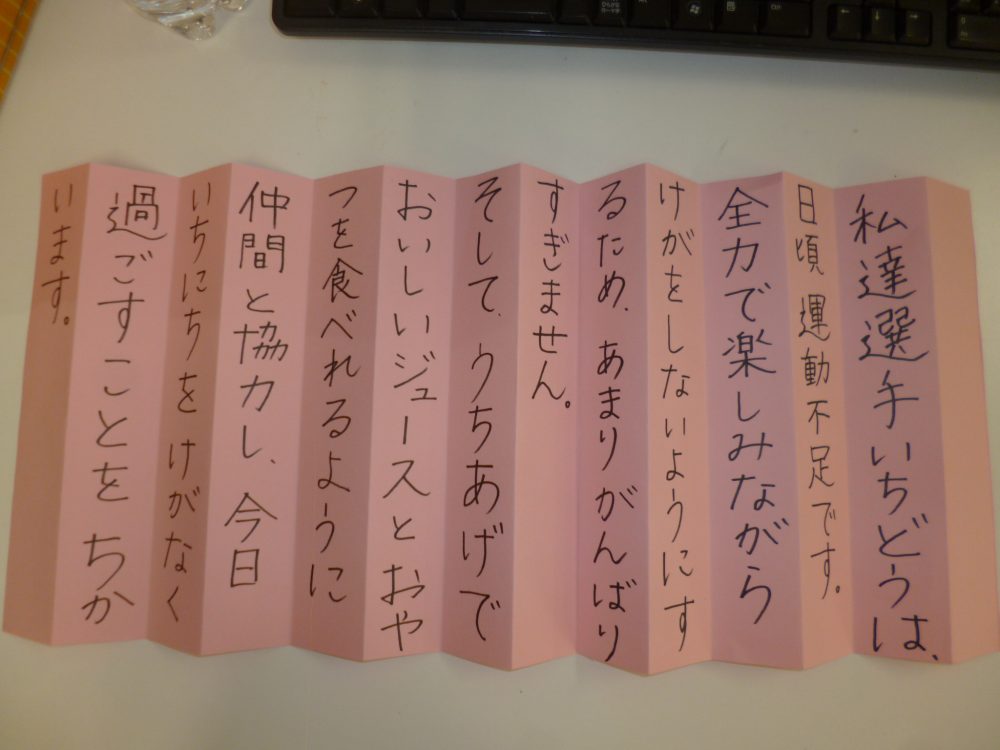 私達選手いちどうは、
日頃運動不足です。
全力で楽しみながら
けがをしないようにす
るため、あまりがんばり
すぎません。
そして、うちあげで
おいしいジュースとおや
つを食べれるように
仲間と協力し、今日
いちにちをけがなく
過ごすことをちか
います。